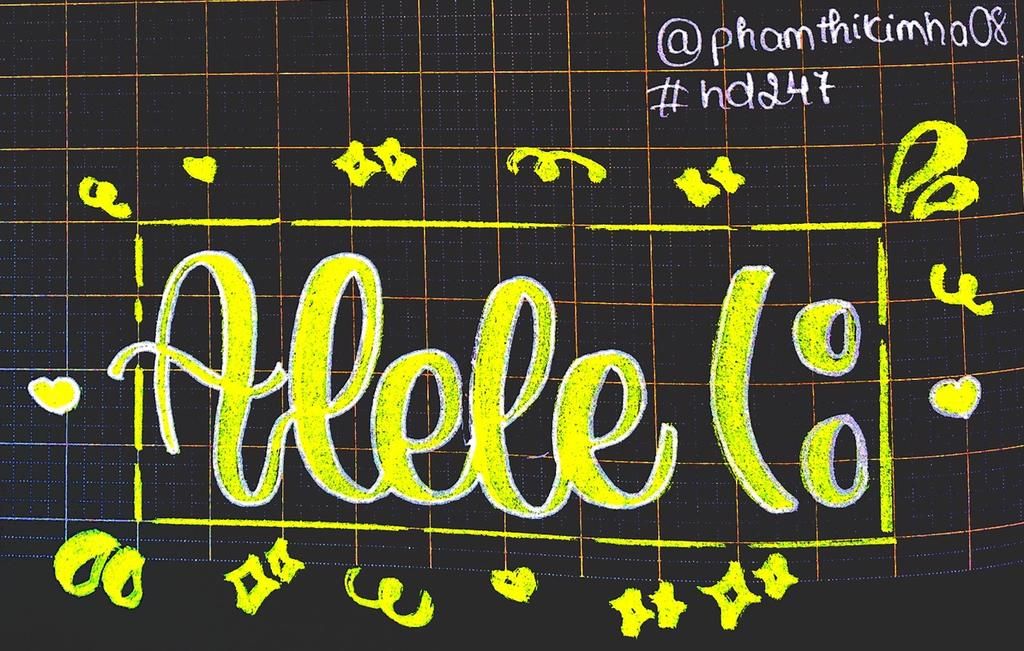 @phamthikimha08
#hd247
Alele (: